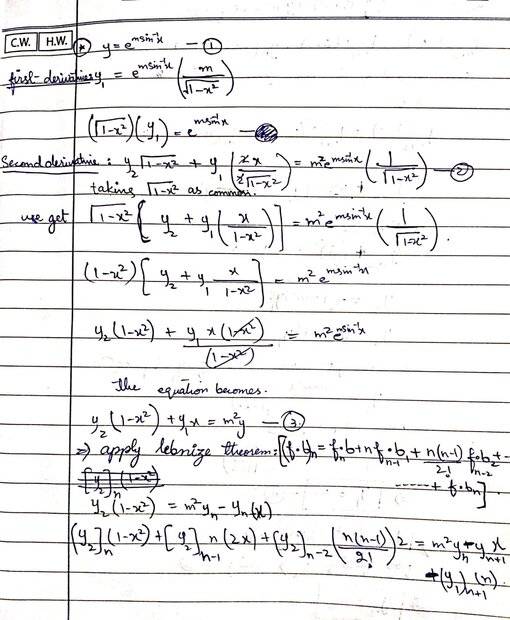 C.W. H.W. * y = e^{m sin⁻¹x} — ①
first-derivative y₁ = e^{m sin⁻¹x} (m/√(1-x²))
(√(1-x²)) (y₁) = e^{m sin⁻¹x} —
Second derivative : y₂ √(1-x²) + y₁ (2x/2√(1-x²)) = m² e^{m sin⁻¹x} (1/√(1-x²)) — ②
taking √(1-x²) as common.
we get √(1-x²) [y₂ + y₁ (x/(1-x²))] = m² e^{m sin⁻¹x} (1/√(1-x²)).
(1-x²) [y₂ + y₁ x/(1-x²)] = m² e^{m sin⁻¹x}
y₂ (1-x²) + y₁ x (1-x²)/(1-x²) = m² e^{m sin⁻¹x}
the equation becomes.
y₂ (1-x²) + y₁x = m²y — ③
⇒ apply lebnize theorem: [f·b)ₙ = fₙ·b + n fₙ₋₁·b₁ + n(n-1)/2! fₙ₋₂·b₂ + --
[y₂]ₙ (1-x²) ------ + f·bₙ].
y₂ (1-x²) = m²yₙ - yₙ(x)
(y₂]ₙ (1-x²) + [y₂]ₙ₋₁ n (2x) + [y₂]ₙ₋₂ (n(n-1)/2!) 2 = m²yₙ - yₙ₊₁ x
+ (y₁)ₙ₊₁ (n)